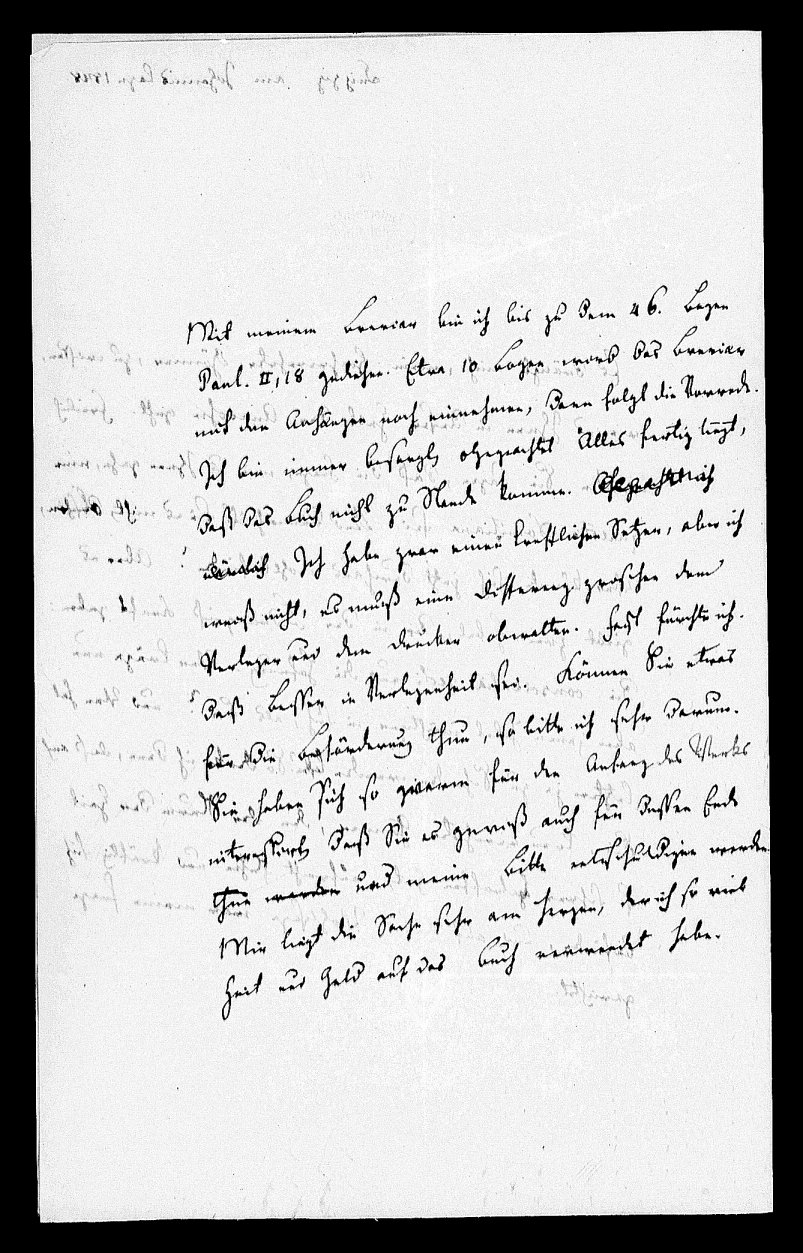 Mit meinem Brevier bin ich bis zu dem 46. Bogen
Paul. II, 18 gediehen. Etwa 10 Bogen wird das Brevier
mit den Anhängen noch einnehmen, dann folgt die Vorrede.
Ich bin immer besorgt ohgeachtet Alles fertig liegt,
daß das Buch nicht zu Stande komme.
Ich habe zwar einen trefflichen Setzer, aber ich
weiß nicht, es muß eine Differenz zwischen dem
Verleger und dem Drucker obwalten. Fast fürchte ich.
daß Besser in Verlegenheit sei. Können Sie etwas
für die Beförderung thun, so bitte ich sehr darum.
Sie haben Sich so warm für den Anfang des Werks
interessirt, daß Sie es gewiß auch für dessen Ende
thun werden und meine Bitte entschuldigen werden
Mir liegt die Sache sehr am Herzen, der ich so viel
Zeit und Geld auf das Buch verwendet habe.